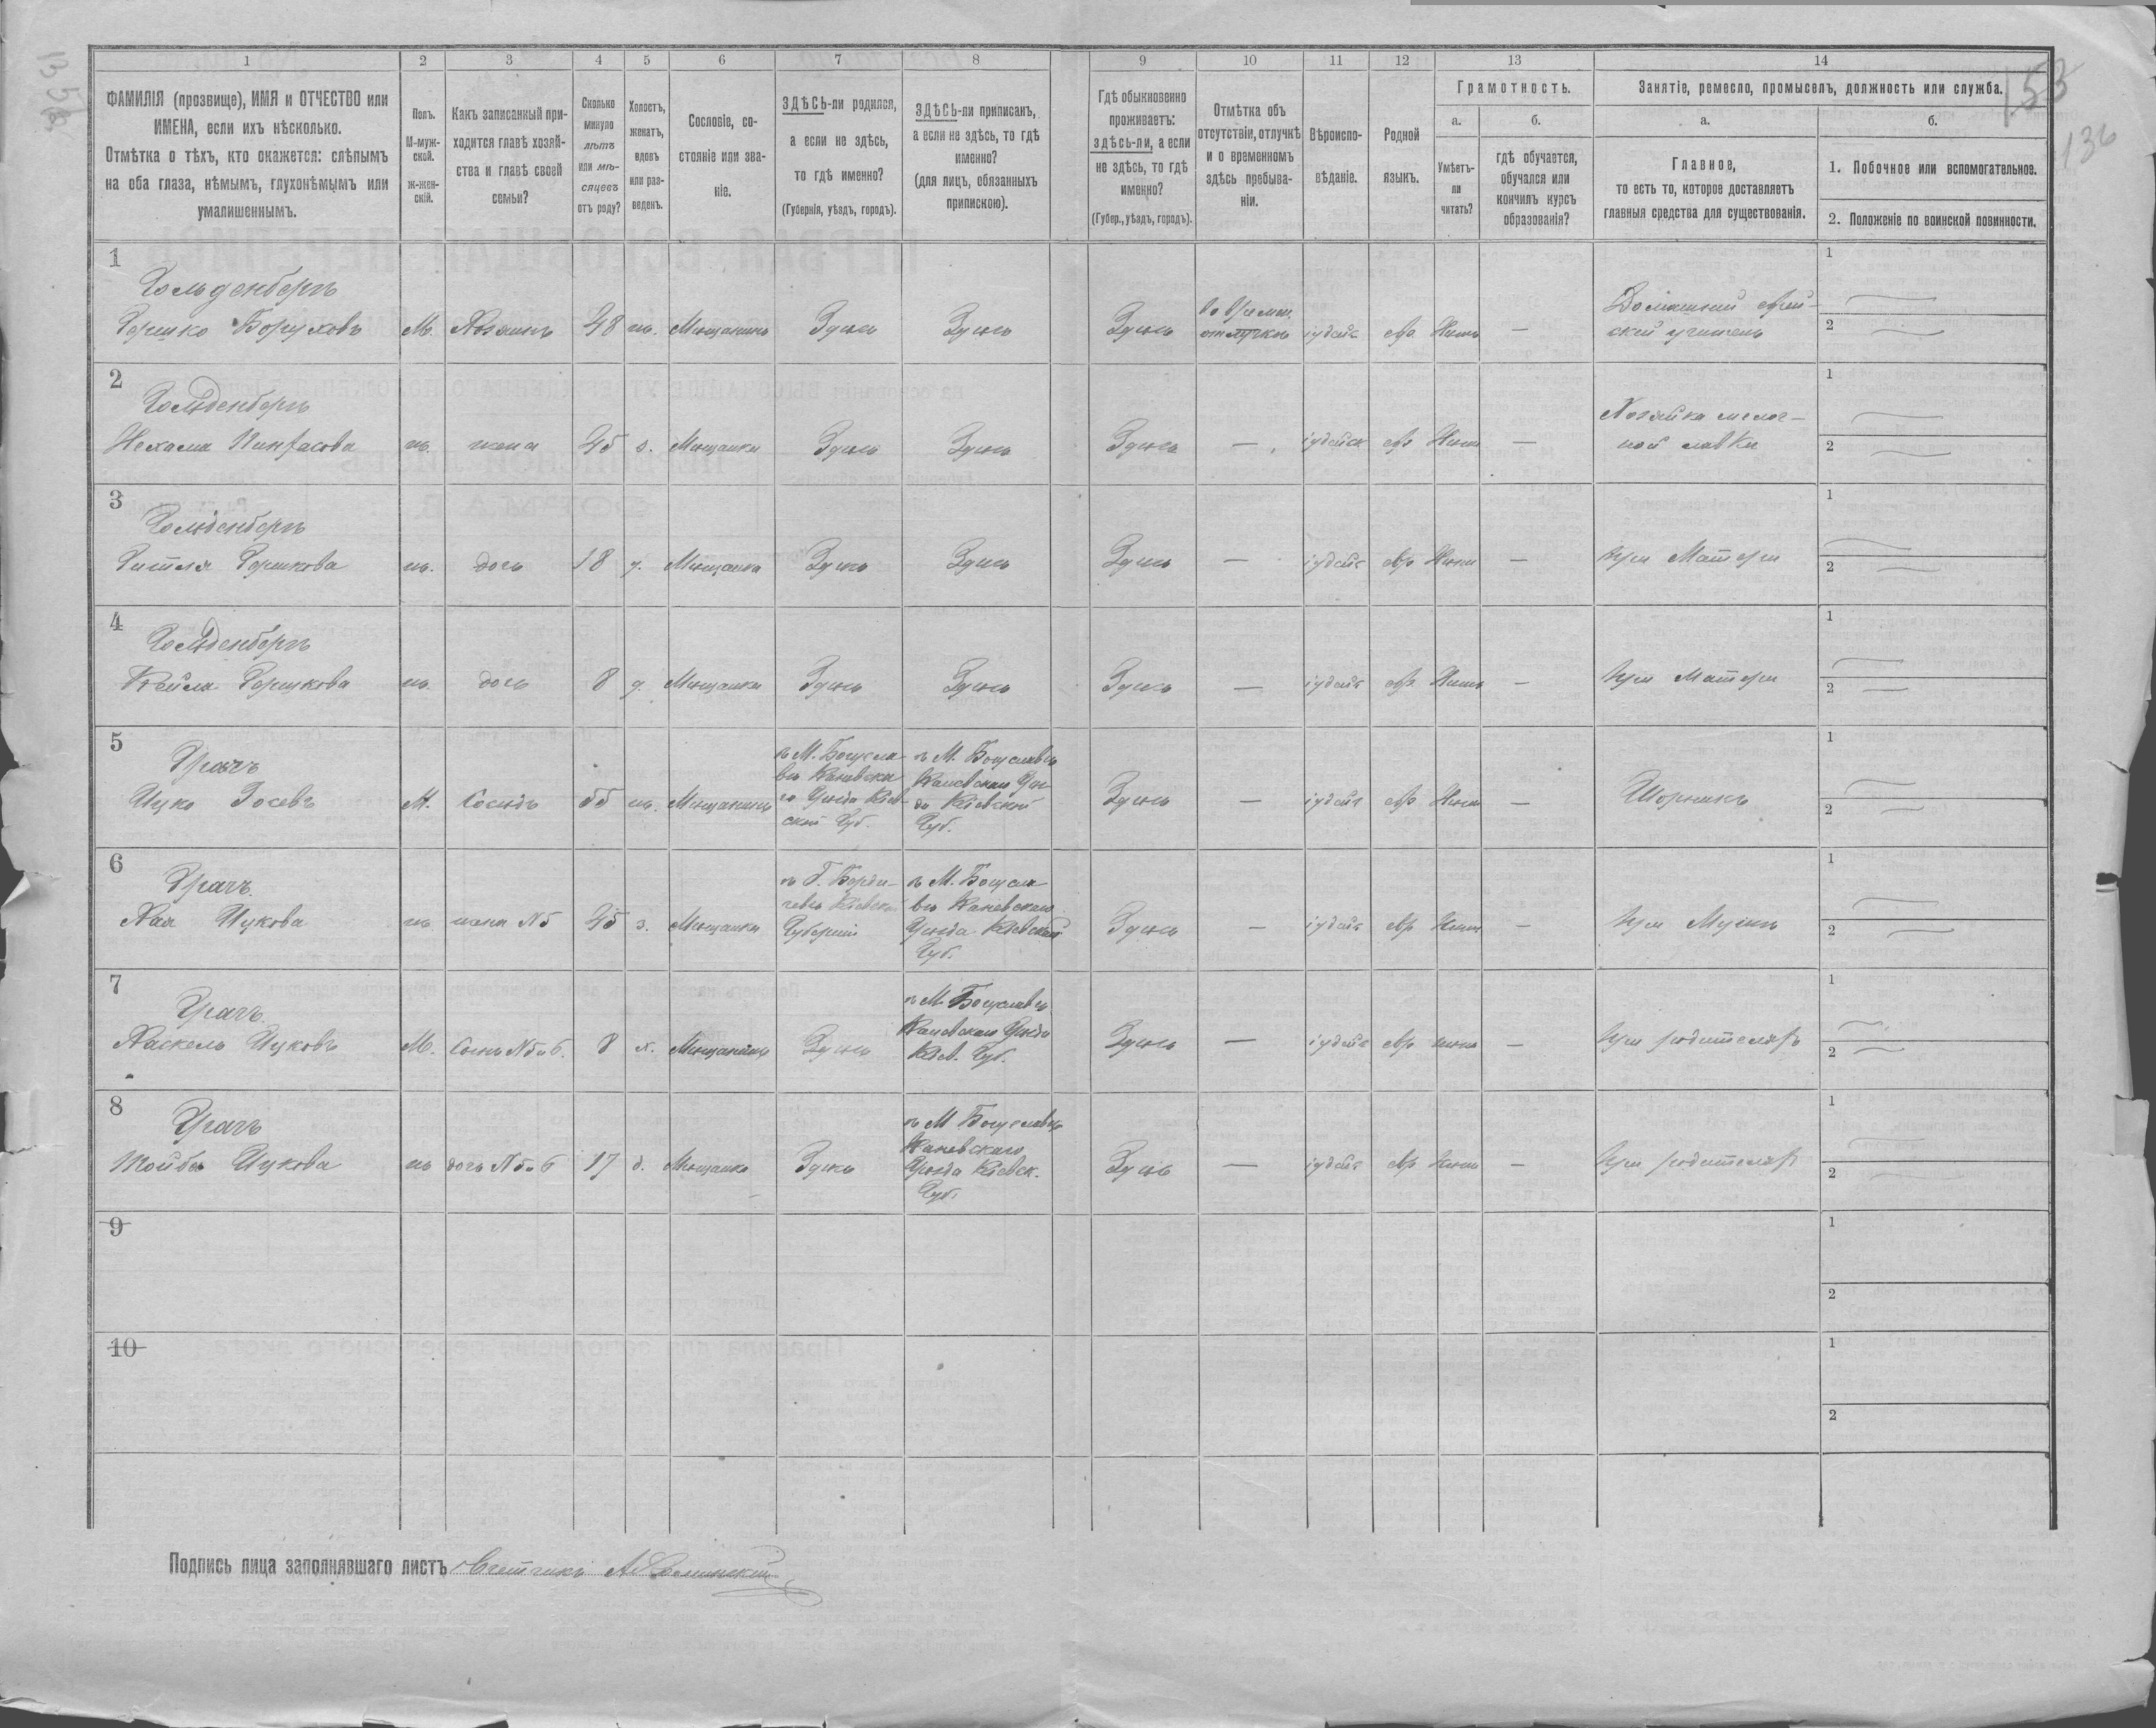 153
136
1 2 3 4 5 6 7 8 9 10 11 12 13 14
ФАМИЛІЯ (прозвище), ИМЯ и ОТЧЕСТВО или
ИМЕНА, если ихъ нѣсколько.
Отмѣтка о тѣхъ, кто окажется: слѣпымъ
на оба глаза, нѣмымъ, глухонѣмымъ или
умалишеннымъ.
Полъ.
М-муж-
ской.
ж-жен-
скій.
Какъ записанный при-
ходится главѣ хозяй-
ства и главѣ своей
семьи?
Сколько
минуло
лѣтъ
или мѣ-
сяцевъ
отъ роду?
Холостъ,
женатъ,
вдовъ
или раз-
веденъ.
Сословіе, со-
стояніе или зва-
ніе.
ЗДѢСЬ-ли родился,
а если не здѣсь,
то гдѣ именно?
(Губернія, уѣздъ, городъ).
ЗДѢСЬ-ли приписанъ,
а если не здѣсь, то гдѣ
именно?
(для лицъ, обязанныхъ
припискою).
Гдѣ обыкновенно
проживаетъ:
здѣсь-ли, а если
не здѣсь, то гдѣ
именно?
(Губер., уѣздъ, городъ).
Отмѣтка объ
отсутствіи, отлучкѣ
и о временномъ
здѣсь пребыва-
ніи.
Вѣроиспо-
вѣданіе.
Родной
языкъ.
Грамотность.
а.
Умѣетъ-
ли
читать?
б.
гдѣ обучается,
обучался или
кончилъ курсъ
образованія?
Занятіе, ремесло, промыселъ, должность или служба.
а.
Главное,
то есть то, которое доставляетъ
главныя средства для существованія.
б.
1. Побочное или вспомогательное.
2. Положеніе по воинской повинности.
1
Гольденбергъ
Гершко Боруховъ М. Хозяинъ 48 ж. Мѣщанинъ Здѣсь Здѣсь Здѣсь
во времен.
отлучкѣ іудейс евр. Нѣтъ —
Домашній еврей-
скій учитель
1
2
2
Гольденбергъ
Нехама Пинхасова ж. жена 45 з. Мѣщанка Здѣсь Здѣсь Здѣсь — іудейск евр Нѣтъ —
Хозяйка мелоч-
ной лавки
1
2
3
Гольденбергъ
Гитля Гершкова ж. дочь 18 д. Мѣщанка Здѣсь Здѣсь Здѣсь — іудейс евр Нѣтъ — при Матери
1
2
4
Гольденбергъ
Кейла Гершкова ж. дочь 8 д. Мѣщанка Здѣсь Здѣсь Здѣсь — іудейс евр Нѣтъ — при Матери
1
2
5
Грачъ
Ицко Іосевъ М. Сосѣдъ 55 ж. Мѣщанинъ
въ М. Богусла-
вѣ Каневска-
го Уѣзда Кіев-
ской Губ.
въ М. Богуславѣ
Каневскаго Уѣз-
да Кіевской
Губ.
Здѣсь — іудейс евр Нѣтъ — Шорникъ
1
2
6
Грачъ
Хая Ицкова ж. жена №5 45 з. Мѣщанка
въ Г. Берди-
чевѣ Кіевской
Губерніи
въ М. Богусла-
вѣ Каневскаго
Уѣзда Кіевской
Губ.
Здѣсь — іудейс евр Нѣтъ — при Мужѣ
1
2
7
Грачъ
Хаскель Ицковъ М. Сынъ №5и6. 8 х. Мѣщанинъ Здѣсь
въ М. Богуславѣ
Каневскаго Уѣзда
Кіев. Губ.
Здѣсь — іудейс евр Нѣтъ — при родителяхъ
1
2
8
Грачъ
Тойба Ицкова ж дочь №5и6 17 д. Мѣщанка Здѣсь
въ М Богуславѣ
Каневскаго
Уѣзда Кіевск.
Губ.
Здѣсь — іудейс евр Нѣтъ — при родителях
1
2
9
1
2
10
1
2
Подпись лица заполнявшаго листъ Счетчикъ